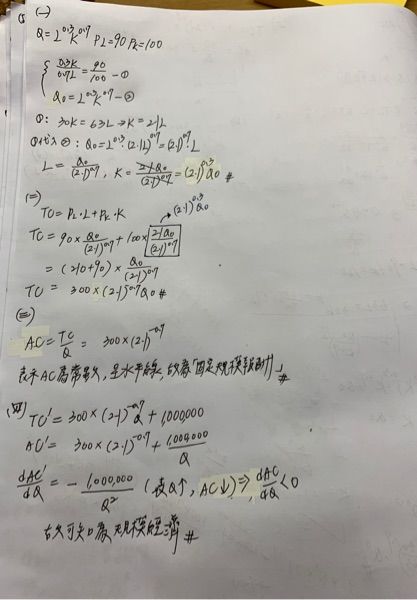 (一)
Q = L^0.3 K^0.7 PL=90 PK=100
{ 0.3K/0.7L = 90/100 -①
Q0 = L^0.3 K^0.7 -②
①: 30K = 63L → K = 2.1L
①代入②: Q0 = L^0.3 · (2.1L)^0.7 = (2.1)^0.7 · L
L = Q0/(2.1)^0.7 , K = 2.1Q0/(2.1)^0.7 = (2.1)^0.3 Q0 #
(二)
TC = PL·L + PK·K → (2.1)^0.3 Q0
TC = 90 × Q0/(2.1)^0.7 + 100 × 2.1Q0/(2.1)^0.7
= (210+90) × Q0/(2.1)^0.7
TC = 300 × (2.1)^-0.7 Q0 #
(三)
AC = TC/Q = 300 × (2.1)^-0.7
表示AC為常數,呈水平線,故為「固定規模報酬」#
(四)
TC' = 300 × (2.1)^-0.7 Q + 1,000,000
AC' = 300 × (2.1)^-0.7 + 1,000,000/Q
dAC'/dQ = - 1,000,000/Q² (Q↑, AC↓) ⇒ dAC/dQ < 0
故可知為規模經濟 #